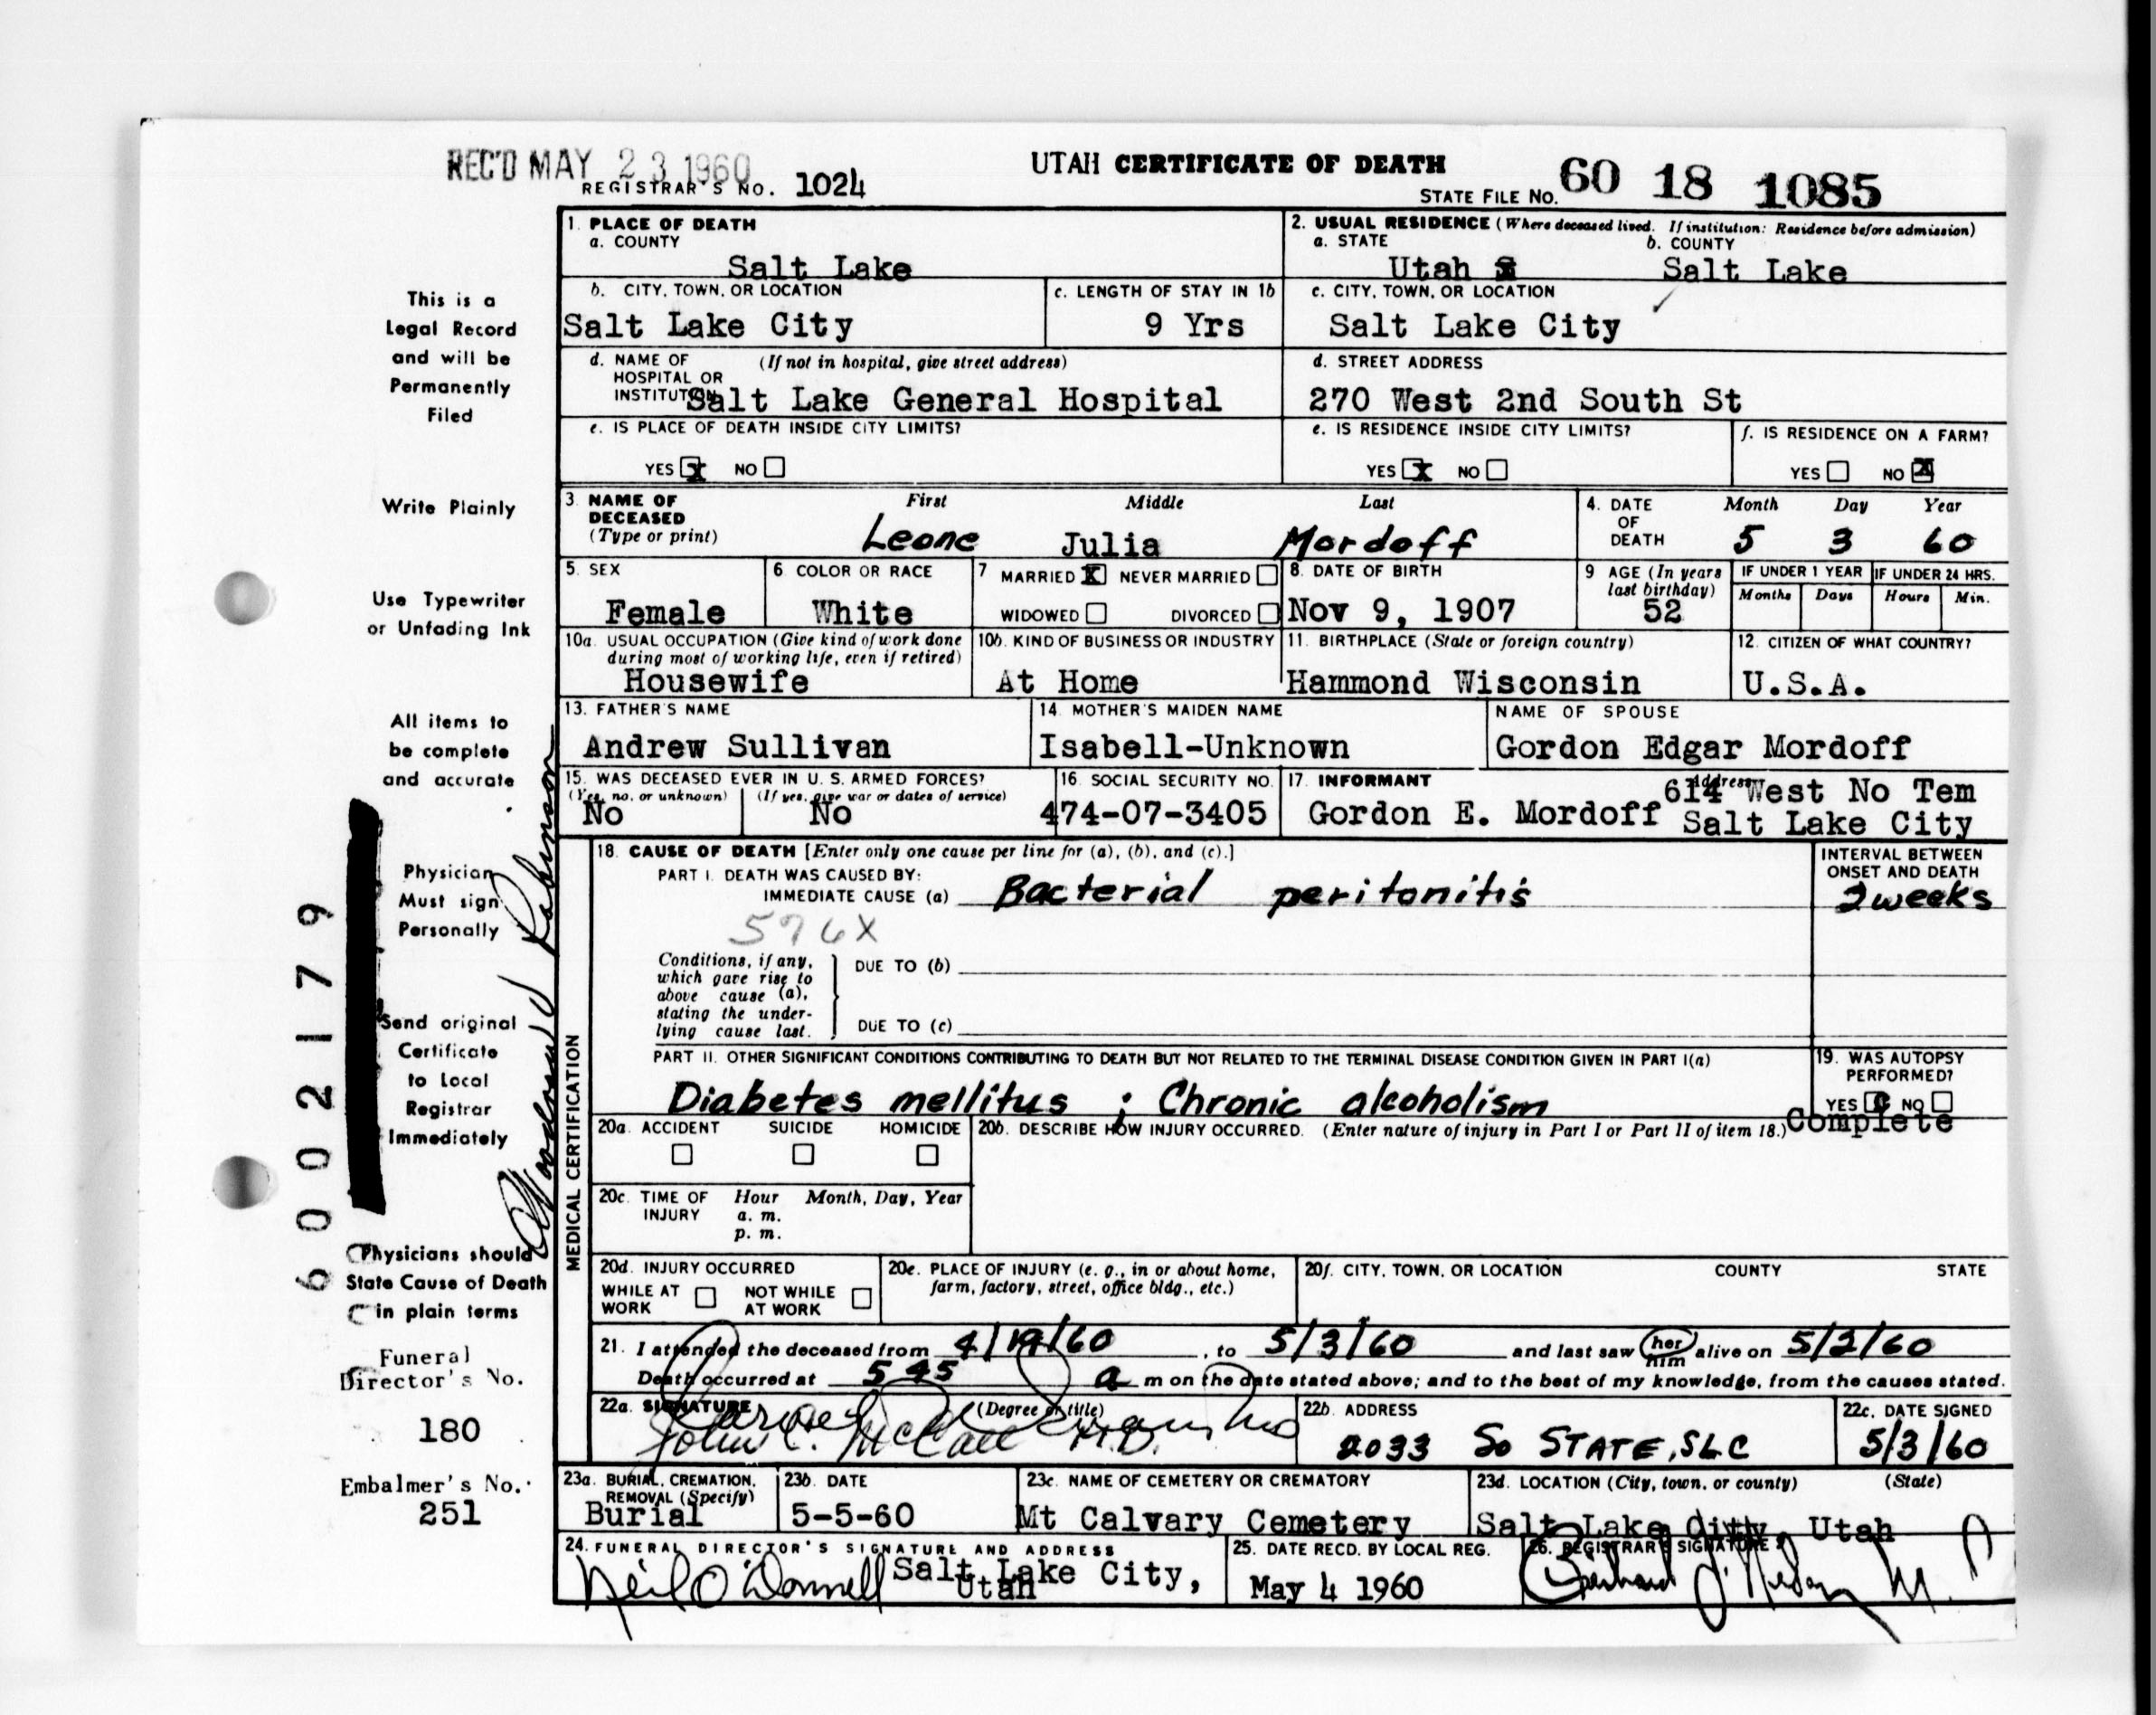 REC'D MAY 23 1960
REGISTRAR'S NO. 1024
UTAH CERTIFICATE OF DEATH
STATE FILE NO. 60 18 1085
This is a
Legal Record
and will be
Permanently
Filed
Write Plainly
Use Typewriter
or Unfading Ink
All items to
be complete
and accurate
Physician
Must sign
Personally
Send original
Certificate
to Local
Registrar
Immediately
Physicians should
State Cause of Death
in plain terms
Funeral
Director's No.
180
Embalmer's No.
251
6002179
Robinson
1. PLACE OF DEATH
a. COUNTY
Salt Lake
2. USUAL RESIDENCE (Where deceased lived. If institution: Residence before admission)
a. STATE b. COUNTY
Utah Salt Lake
b. CITY, TOWN, OR LOCATION
Salt Lake City
c. LENGTH OF STAY IN 1b
9 Yrs
c. CITY, TOWN, OR LOCATION
Salt Lake City
d. NAME OF (If not in hospital, give street address)
HOSPITAL OR
INSTITUTION Salt Lake General Hospital
d. STREET ADDRESS
270 West 2nd South St
e. IS PLACE OF DEATH INSIDE CITY LIMITS?
YES X NO
e. IS RESIDENCE INSIDE CITY LIMITS?
YES X NO
f. IS RESIDENCE ON A FARM?
YES NO X
3. NAME OF DECEASED (Type or print)
First Middle Last
Leone Julia Mordoff
4. DATE OF DEATH
Month Day Year
5 3 60
5. SEX
Female
6. COLOR OR RACE
White
7 MARRIED X NEVER MARRIED
WIDOWED DIVORCED
8. DATE OF BIRTH
Nov 9, 1907
9 AGE (In years last birthday)
52
IF UNDER 1 YEAR IF UNDER 24 HRS.
Months Days Hours Min.
10a. USUAL OCCUPATION (Give kind of work done
during most of working life, even if retired)
Housewife
10b. KIND OF BUSINESS OR INDUSTRY
At Home
11. BIRTHPLACE (State or foreign country)
Hammond Wisconsin
12. CITIZEN OF WHAT COUNTRY?
U.S.A.
13. FATHER'S NAME
Andrew Sullivan
14. MOTHER'S MAIDEN NAME
Isabell-Unknown
NAME OF SPOUSE
Gordon Edgar Mordoff
15. WAS DECEASED EVER IN U. S. ARMED FORCES?
(Yes, no, or unknown) (If yes, give war or dates of service)
No No
16. SOCIAL SECURITY NO.
474-07-3405
17. INFORMANT Address
Gordon E. Mordoff 614 West No Tem
Salt Lake City
MEDICAL CERTIFICATION
18. CAUSE OF DEATH [Enter only one cause per line for (a), (b), and (c).]
PART I. DEATH WAS CAUSED BY:
IMMEDIATE CAUSE (a) Bacterial peritonitis
INTERVAL BETWEEN
ONSET AND DEATH
2 weeks
576X
Conditions, if any,
which gave rise to
above cause (a),
stating the under-
lying cause last.
DUE TO (b)
DUE TO (c)
PART II. OTHER SIGNIFICANT CONDITIONS CONTRIBUTING TO DEATH BUT NOT RELATED TO THE TERMINAL DISEASE CONDITION GIVEN IN PART I(a)
Diabetes mellitus ; Chronic alcoholism
19. WAS AUTOPSY
PERFORMED?
YES C NO
Complete
20a. ACCIDENT SUICIDE HOMICIDE
20b. DESCRIBE HOW INJURY OCCURRED. (Enter nature of injury in Part I or Part II of item 18.)
20c. TIME OF INJURY Hour Month, Day, Year
a. m.
p. m.
20d. INJURY OCCURRED
WHILE AT WORK NOT WHILE AT WORK
20e. PLACE OF INJURY (e. g., in or about home,
farm, factory, street, office bldg., etc.)
20f. CITY, TOWN, OR LOCATION COUNTY STATE
21. I attended the deceased from 4/19/60, to 5/3/60 and last saw her him alive on 5/2/60
Death occurred at 5 45 a m on the date stated above; and to the best of my knowledge, from the causes stated.
22a. SIGNATURE (Degree or title)
John C. McCall M.D.
22b. ADDRESS
2033 So STATE, SLC
22c. DATE SIGNED
5/3/60
23a. BURIAL, CREMATION,
REMOVAL (Specify)
Burial
23b. DATE
5-5-60
23c. NAME OF CEMETERY OR CREMATORY
Mt Calvary Cemetery
23d. LOCATION (City, town, or county) (State)
Salt Lake City, Utah
24. FUNERAL DIRECTOR'S SIGNATURE AND ADDRESS
Neil O'Donnell Salt Lake City,
Utah
25. DATE RECD. BY LOCAL REG.
May 4 1960
26. REGISTRAR'S SIGNATURE